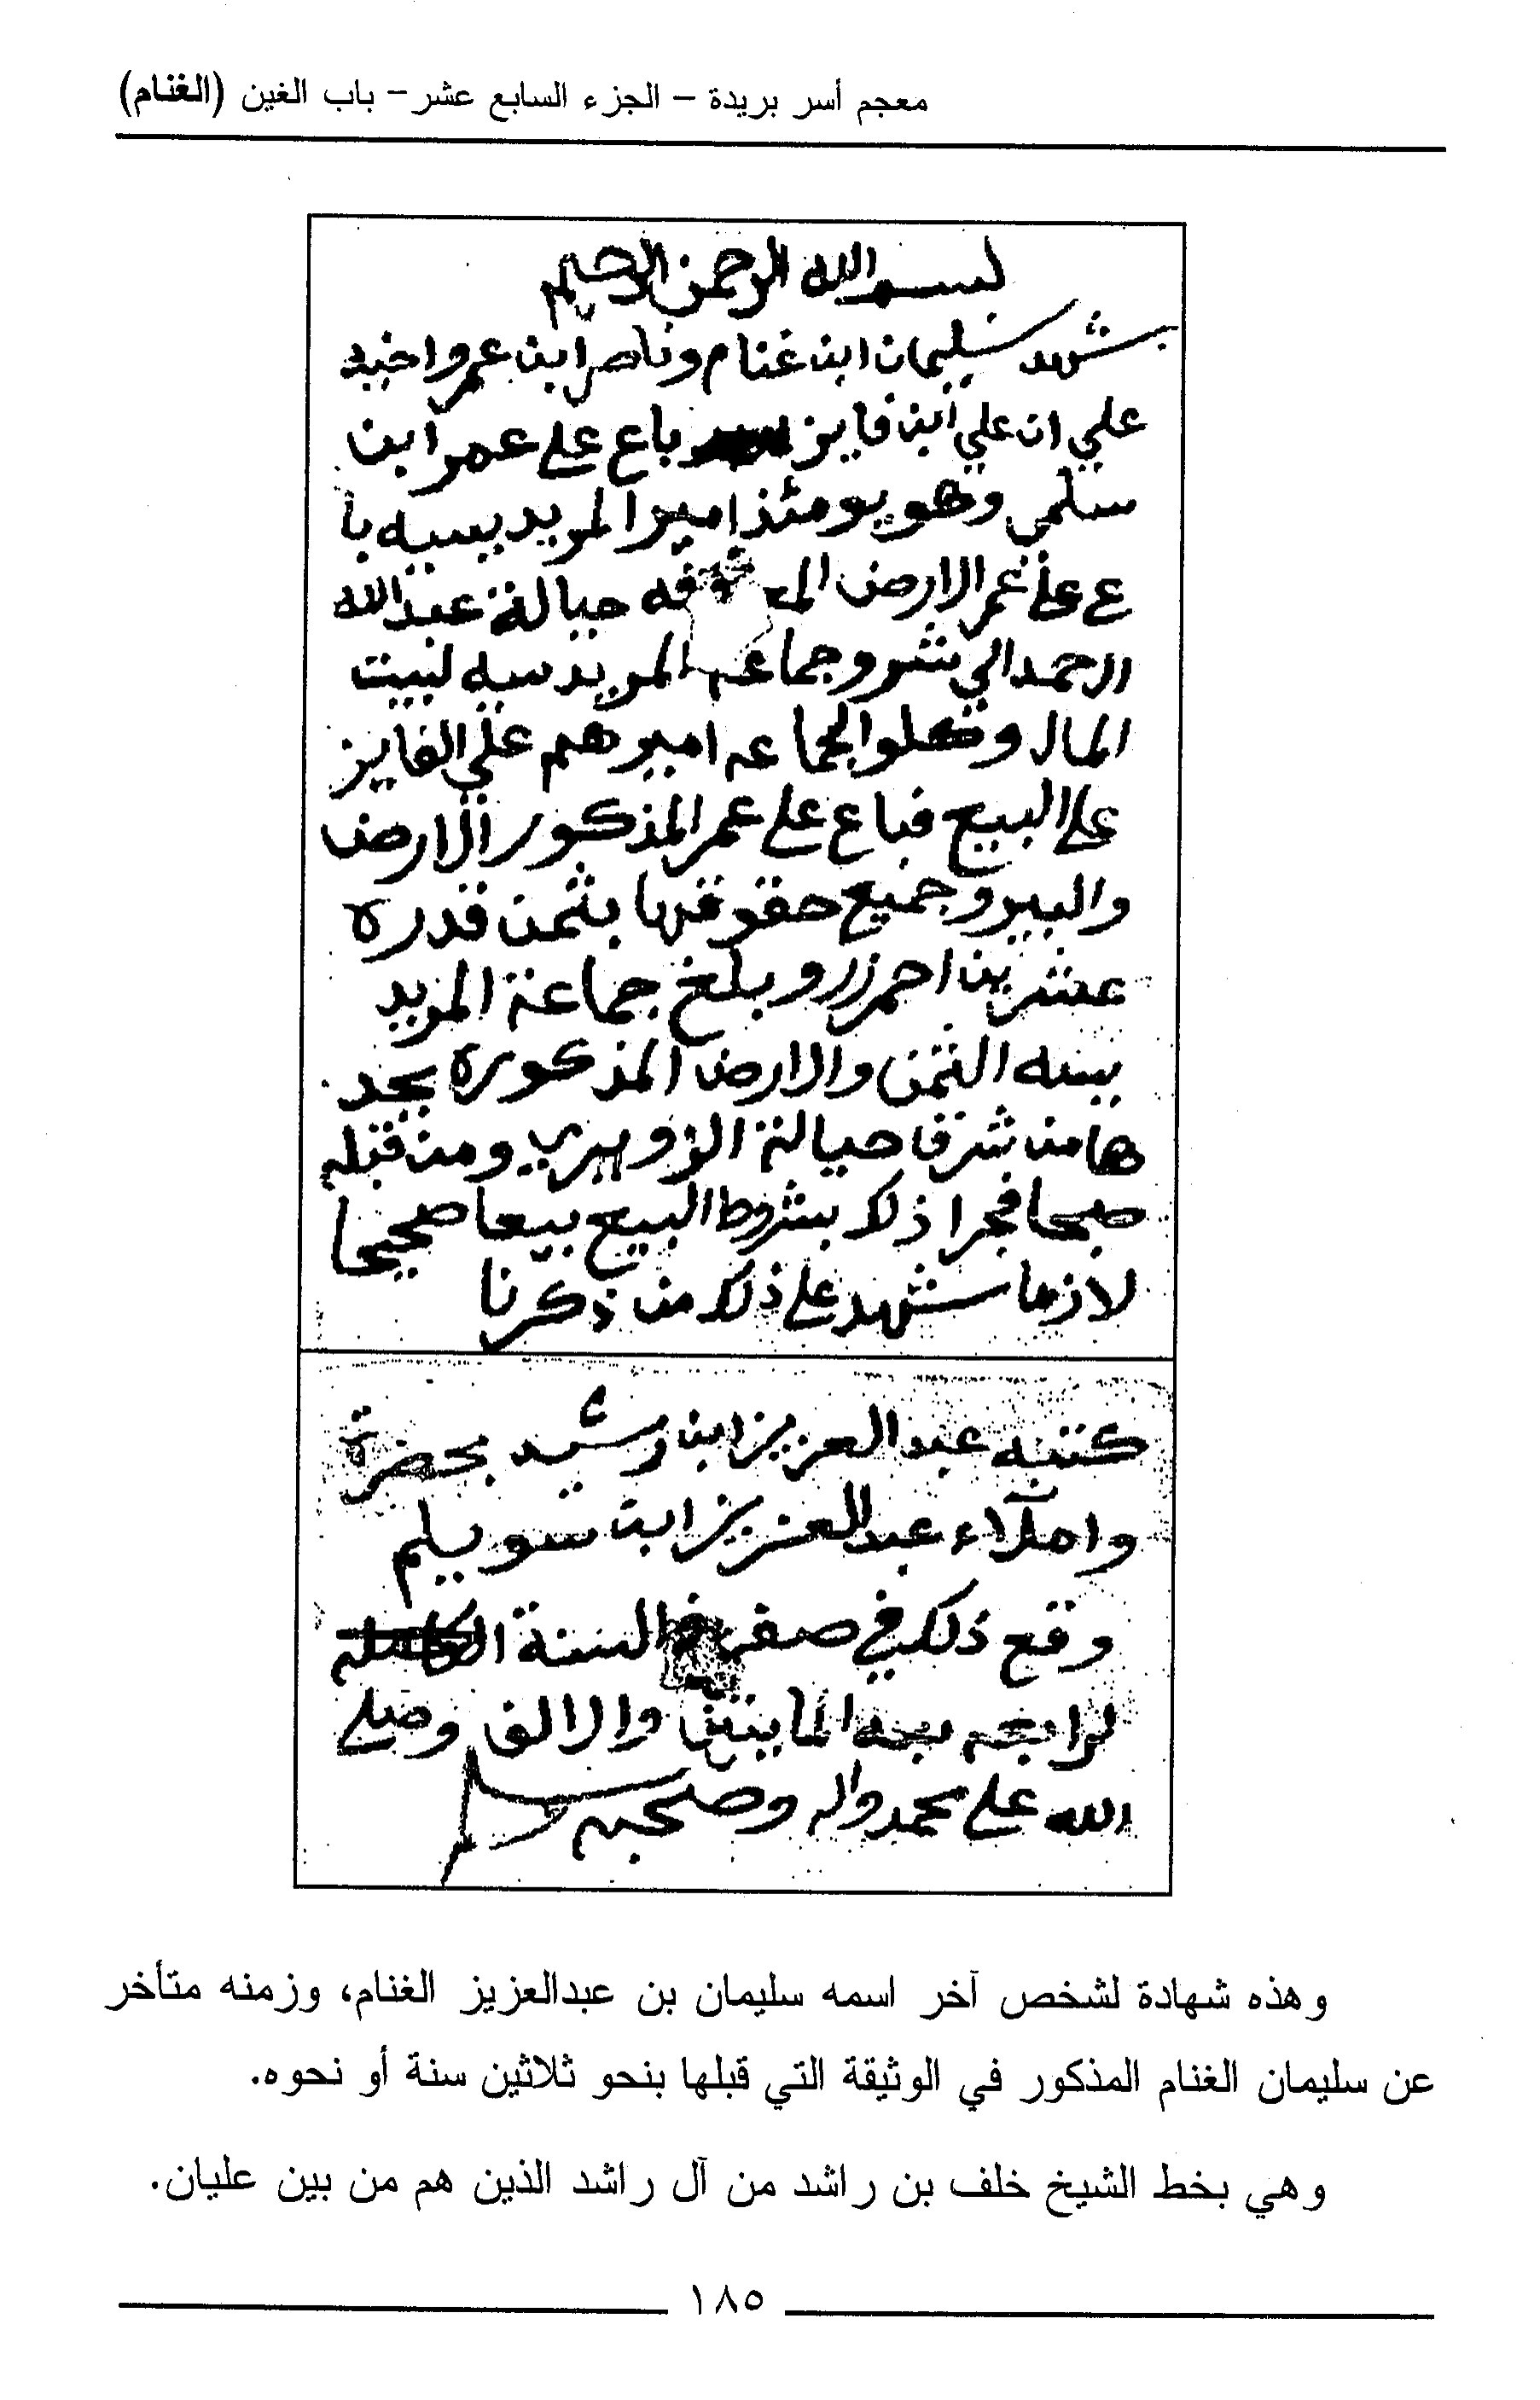 معجم أسر بريدة – الجزء السابع عشر – باب الغين (الغنام)
بسم الله الرحمن الرحيم
شهد سليمان ابن غنام وناصر ابن عمر واخيه
علي ان علي ابن فايز باع على عمر ابن
سلمي وهو يومئذ امير المريديسيه با
ع على عمر الارض حيالة عبدالله
الاحمد الي شر وجماعه المريدسيه لبيت
المال ووكلوا الجماعه اميرهم علي الفايز
على البيع فباع على عمر المذكور الارض
والبير وجميع حقوقها بثمن قدره
عشرين احمر زر وبلغ جماعة المريد
يسه الثمن والارض المذكوره يحد
ها من شرق حيالة ومن قبله
صبحا فجرا ذلك بشروط البيع بيعا صحيحا
لازما شهد على ذلك من ذكرنا
كتبه عبدالعزيز ابن رشيد بحضرة
واملاء عبدالعزيز ابن سويلم
وقع ذلك في صفر السنة
الرابعه بعد المايتين والالف وصلى
الله على محمد واله وصحبه وسلم
وهذه شهادة لشخص آخر اسمه سليمان بن عبدالعزيز الغنام، وزمنه متأخر
عن سليمان الغنام المذكور في الوثيقة التي قبلها بنحو ثلاثين سنة أو نحوه.
وهي بخط الشيخ خلف بن راشد من آل راشد الذين هم من بين عليان.
١٨٥